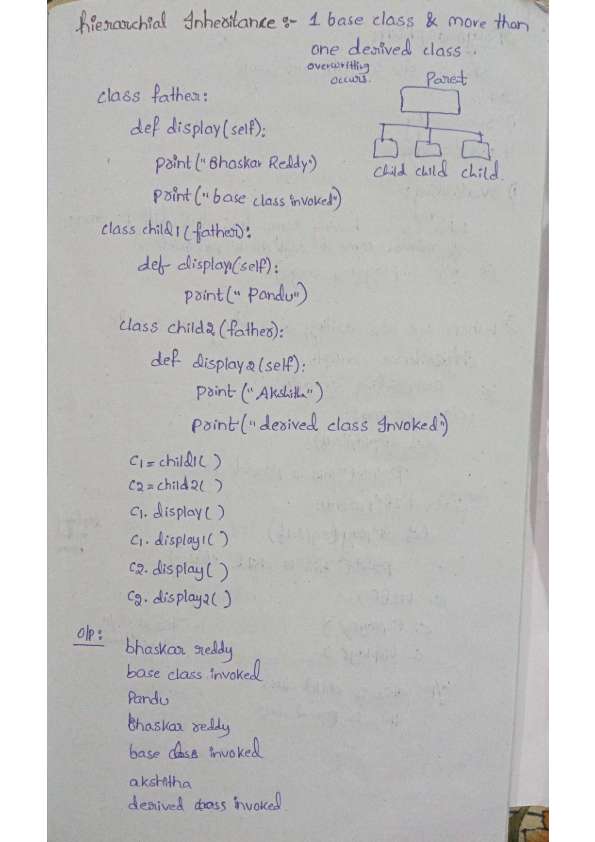 hierarchial Inheritance :- 1 base class & more than
one derived class.
overwritting
occurs.
Paret
child child child.
class father:
def display(self):
print("Bhaskar Reddy")
print("base class invoked")
class child1(father):
def display1(self):
print("Pandu")
class child2(father):
def display2(self):
print("Akshitha")
print("derived class Invoked")
C1=child1()
C2=child2()
C1.display()
C1.display1()
C2.display()
C2.display2()
O/P:
bhaskar reddy
base class invoked
Pandu
Bhaskar reddy
base class invoked
akshitha
derived class invoked.